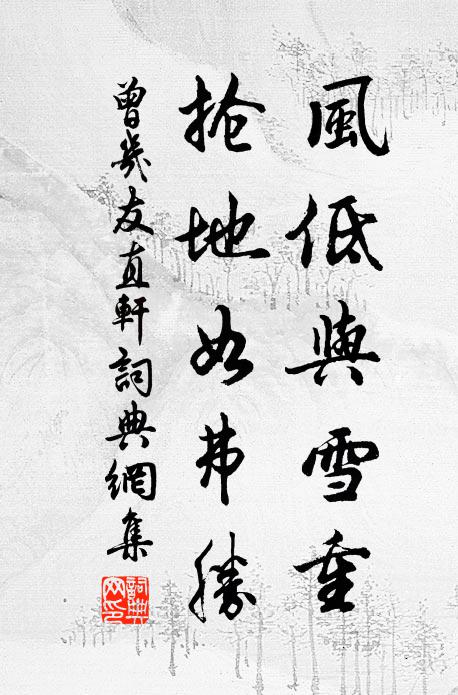 風低與雪重
搶地如弗勝
曾幾友直軒詞典網集
詞典網印